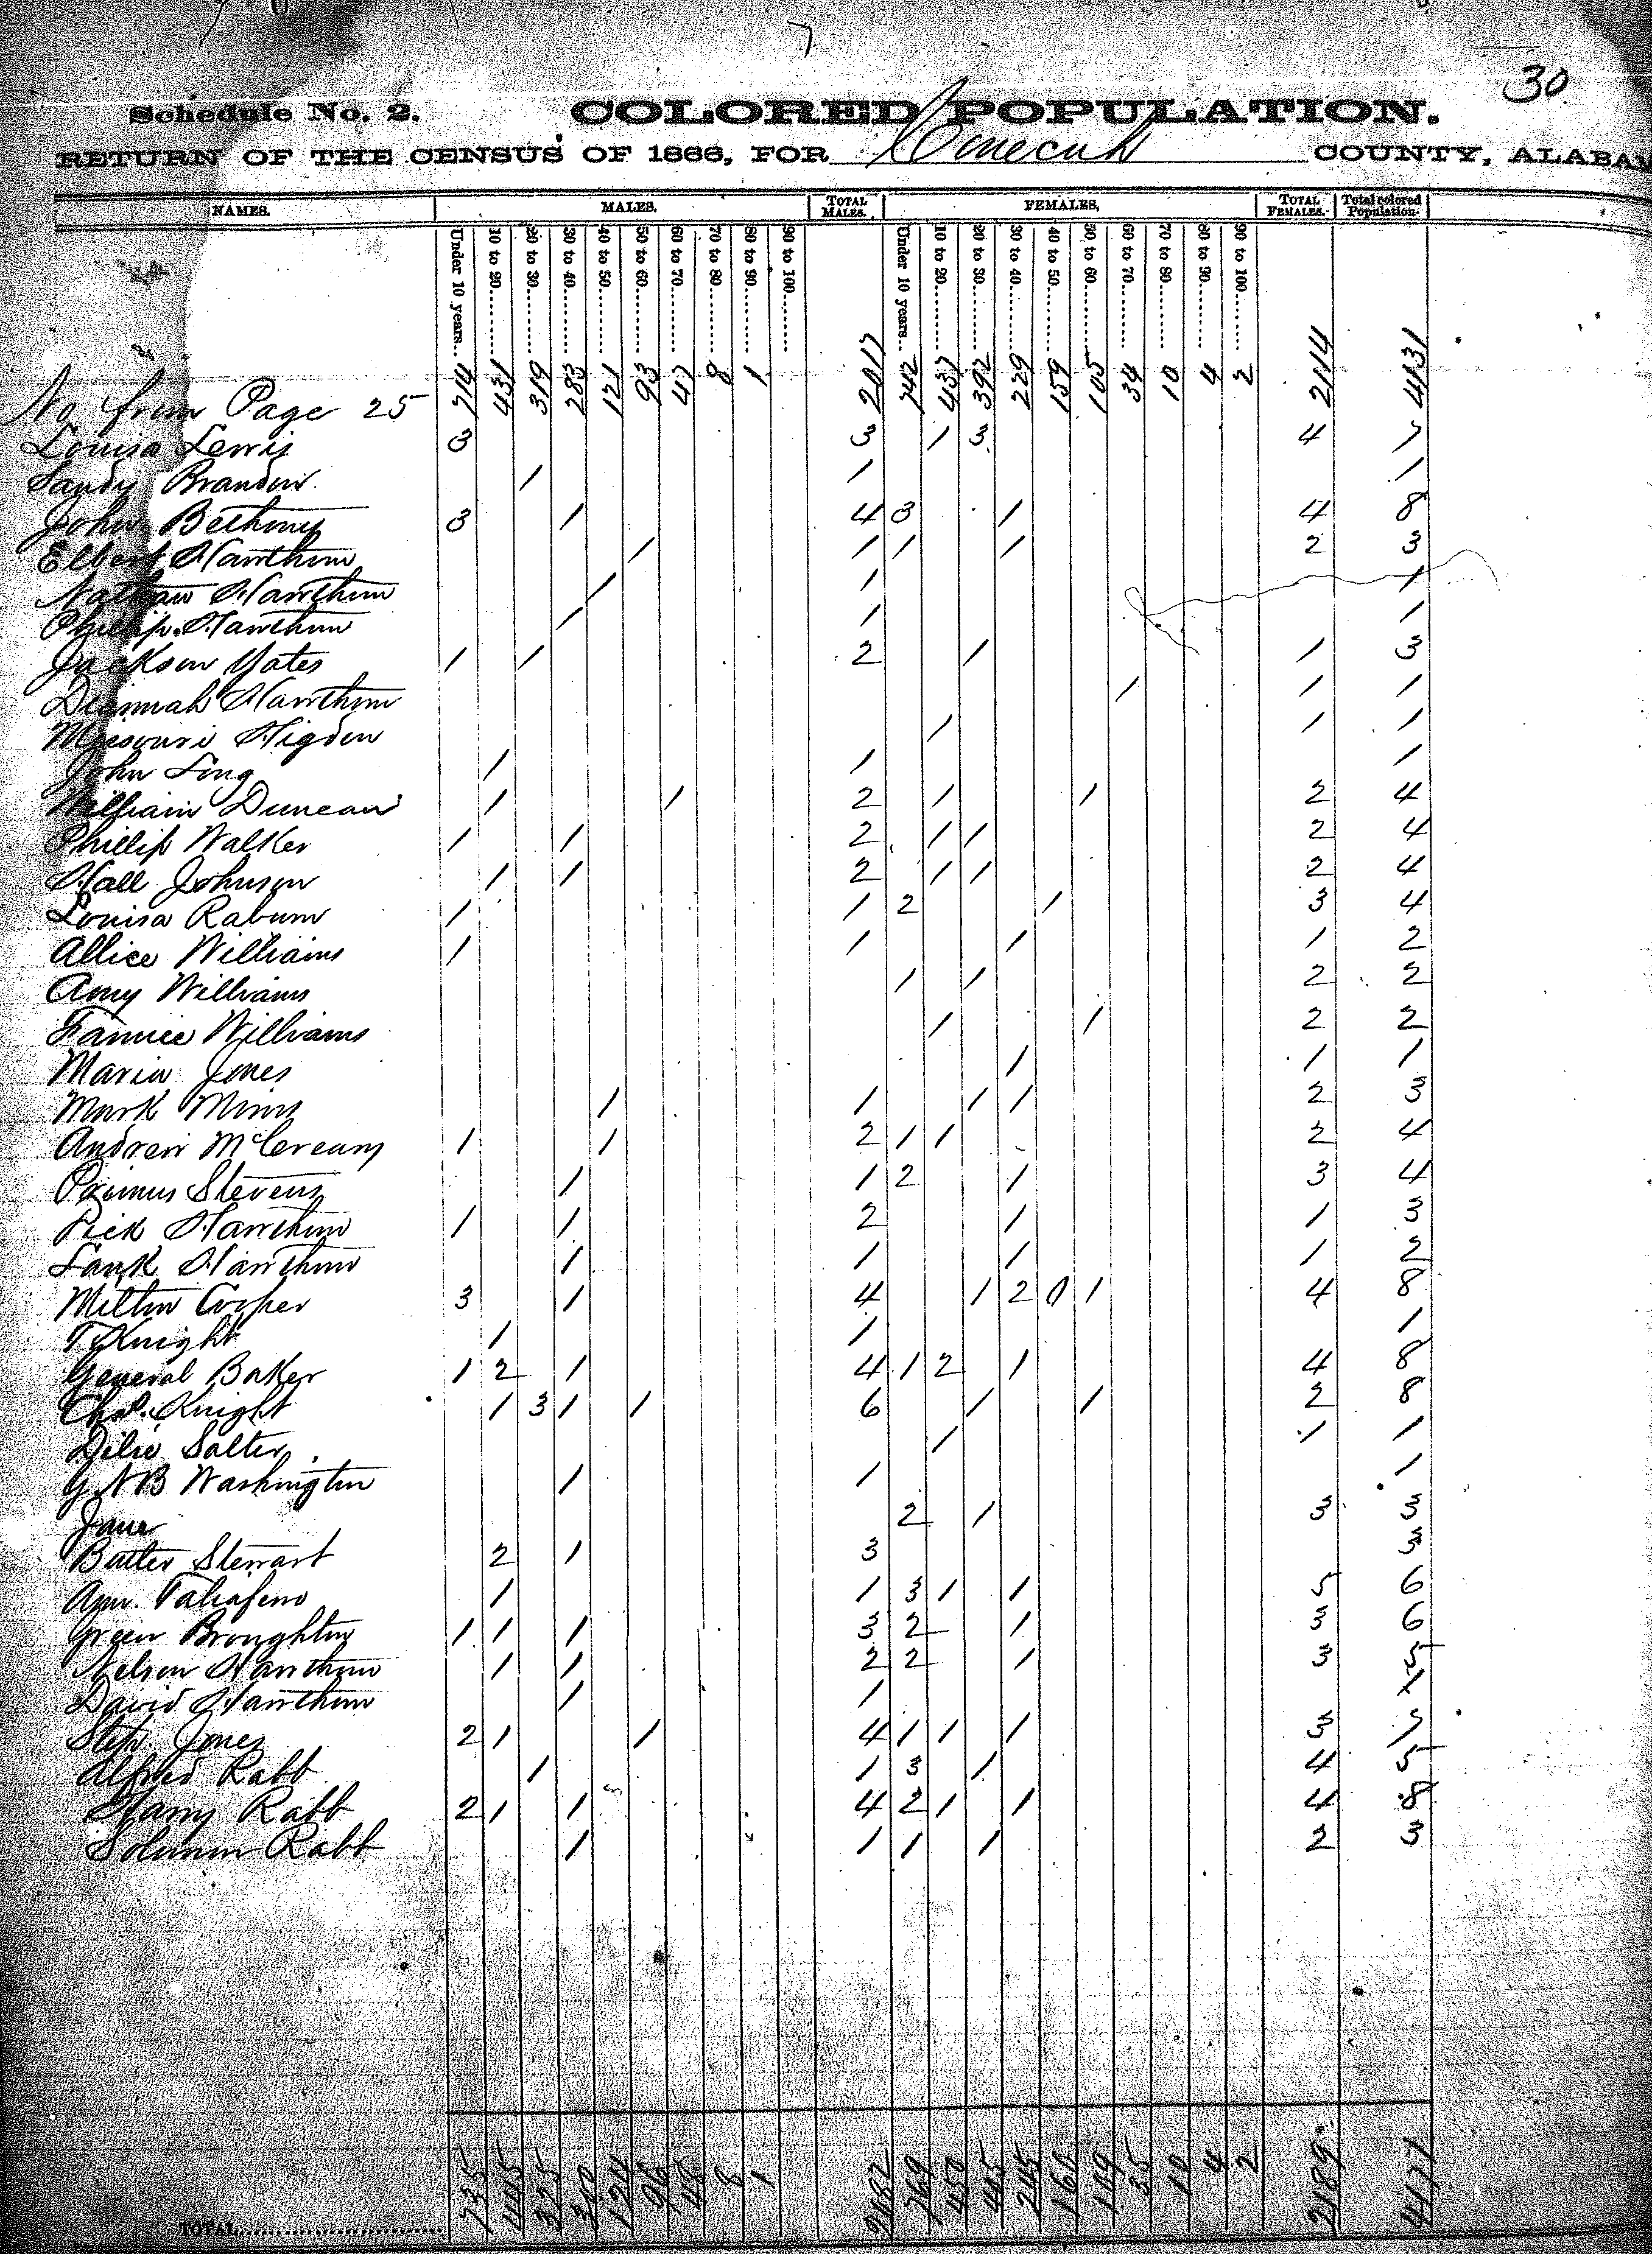 30
Schedule No. 2. COLORED POPULATION.
RETURN OF THE CENSUS OF 1866, FOR Conecuh COUNTY, ALABAM
NAMES. MALES. TOTAL MALES. FEMALES, TOTAL FEMALES. Total colored Population.
Under 10 years.. 10 to 20 20 to 30 30 to 40 40 to 50 50 to 60 60 to 70 70 to 80 80 to 90 90 to 100 Under 10 years.. 10 to 20 20 to 30 30 to 40 40 to 50 50 to 60 60 to 70 70 to 80 80 to 90 90 to 100
No from Page 25 714 431 319 283 121 93 47 8 1 2017 742 437 392 229 159 105 34 10 4 2 2114 4131
Louisa Lewis 3 3 1 3 4 7
Sandy Brandon 1 1 1
John Bethony 3 1 4 3 1 4 8
Elbert Hawthorn 1 1 1 1 2 3
Nathan Hawthorn 1 1 1
Phillip Hawthorn 1 1 1
Jackson Yates 1 1 2 1 1 3
Diannah Hawthorn 1 1 1
Missouri Higdon 1 1 1
John Long 1 1 1
William Duncan 1 1 2 1 1 2 4
Phillip Walker 1 1 2 1 1 2 4
Hall Johnson 1 1 2 1 1 2 4
Louisa Raburn 1 1 2 1 3 4
Allice Williams 1 1 1 1 2
Amy Williams 1 1 2 2
Fannie Williams 1 1 2 2
Maria Jones 1 1 1
Mark Mims 1 1 1 1 2 3
Andrew McCreary 1 1 2 1 1 2 4
Primus Stevens 1 1 2 1 3 4
Dick Hawthorn 1 1 2 1 1 3
Lank Hawthorn 1 1 1 1 2
Milton Cooper 3 1 4 1 2 0 1 4 8
T Knight 1 1 1
General Baker 1 2 1 4 1 2 1 4 8
Chas. Knight 1 3 1 1 6 1 1 2 8
Dilsie Salter 1 1 1
G W B Washington 1 1 1
Jane 2 1 3 3
Butler Stewart 2 1 3 3
Ann Taliaferro 1 1 3 1 1 5 6
Green Broughton 1 1 1 3 2 1 3 6
Nelson Hawthorn 1 1 2 2 1 3 5
David Hawthorn 1 1 1
Steph Jones 2 1 1 4 1 1 1 3 7
Alfred Rabb 1 1 3 1 4 5
Harry Rabb 2 1 1 4 2 1 1 4 8
Solomon Rabb 1 1 1 1 2 3
TOTAL 735 445 325 124 96 48 8 1 769 450 245 160 109 35 10 4 2 2189